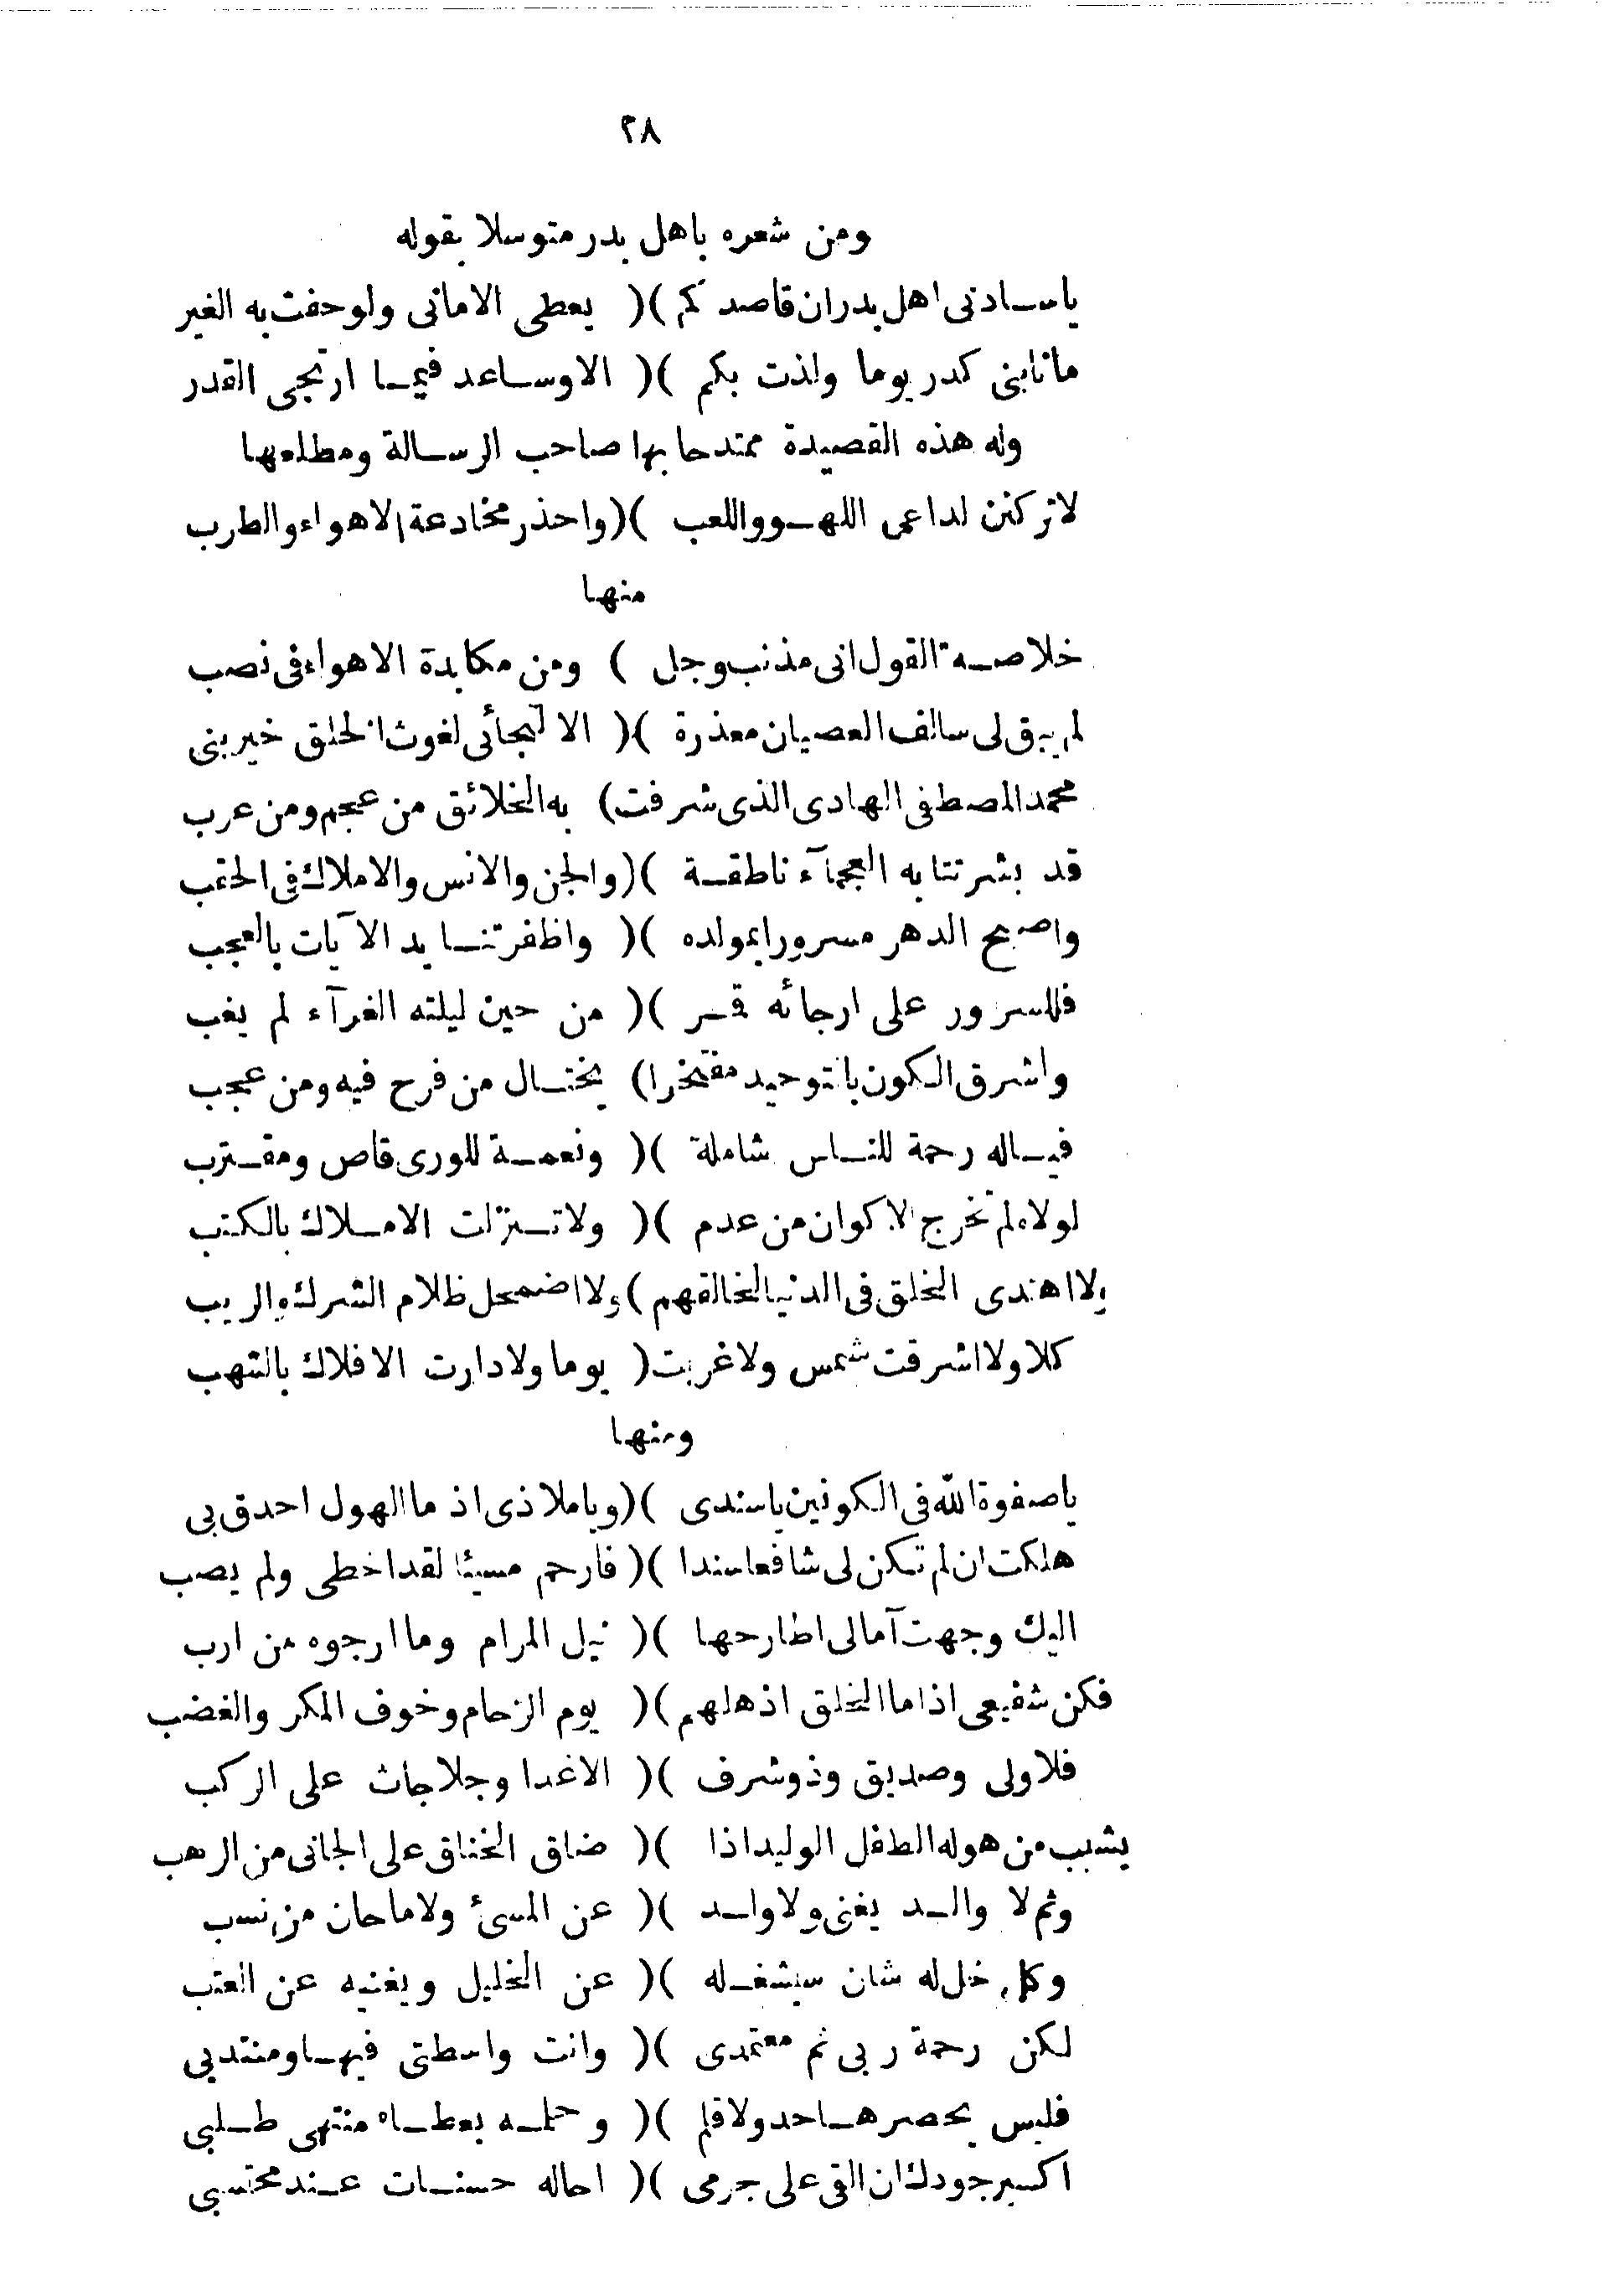 ٢٨
ومن شعره باهل بدر متوسلا بقوله
ياسادتى اهل بدر ان قاصدكم )( يعطى الامانى ولو حفت به الغير
ما نابنى كدر يوما ولذت بكم )( الا وساعد فيما ارتجى القدر
وله هذه القصيدة ممتدحا بها صاحب الرسالة ومطلعها
لا تركنن لداعى اللهو واللعب )( واحذر مخادعة الاهواء والطرب
منها
خلاصة القول انى مذنب وجل ) ومن مكابدة الاهواء فى نصب
لم يبق لى سالف العصيان معذرة )( الا لتجائى لغوث الخلق خير نبى
محمد المصطفى الهادى الذى شرفت) به الخلائق من عجم ومن عرب
قد بشرتنا به العجمآء ناطقة )( والجن والانس والاملاك فى الحقب
واصبح الدهر مسرورا بمولده )( واظفرتنا يد الآيات بالعجب
فللسرور على ارجائه قمر )( من حين ليلته الغرآء لم يغب
واشرق الكون بالتوحيد مفتخرا) يختال من فرح فيه ومن عجب
فياله رحمة للناس شاملة )( ونعمة للورى قاص ومقترب
لولاه لم تخرج الاكوان من عدم )( ولا تنزلت الاملاك بالكتب
ولا اهتدى الخلق فى الدنيا لخالقهم )( ولا اضمحل ظلام الشرك والريب
كلا ولا اشرقت شمس ولا غربت( يوما ولا دارت الافلاك بالشهب
ومنها
ياصفوة الله فى الكونين ياسندى )( وياملاذى اذ ما الهول احدق بى
هلكت ان لم تكن لى شافعا سندا )( فارحم مسيئا لقد اخطى ولم يصب
اليك وجهت آمالى اطارحها )( نيل المرام وما ارجوه من ارب
فكن شفيعى اذا ما الخلق اذهلهم )( يوم الزحام وخوف المكر والغضب
فلا ولى وصديق وذو شرف )( الا غدا وجلا جاث على الركب
يشيب من هوله الطفل الوليد اذا )( ضاق الخناق على الجانى من الرهب
وثم لا والد يغنى ولا ولد )( عن المسئ ولا ماحان من نسب
وكل خل له شان سيشغله )( عن الخليل ويغنيه عن العتب
لكن رحمة ربى ثم معتمدى )( وانت واسطتى فيها ومنتدبى
فليس يحصرها حد ولا قلم )( وحلمه بعطاه منتهى طلبى
اكسير جودك ان القى على جرمى )( احاله حسنات عند محتسبى